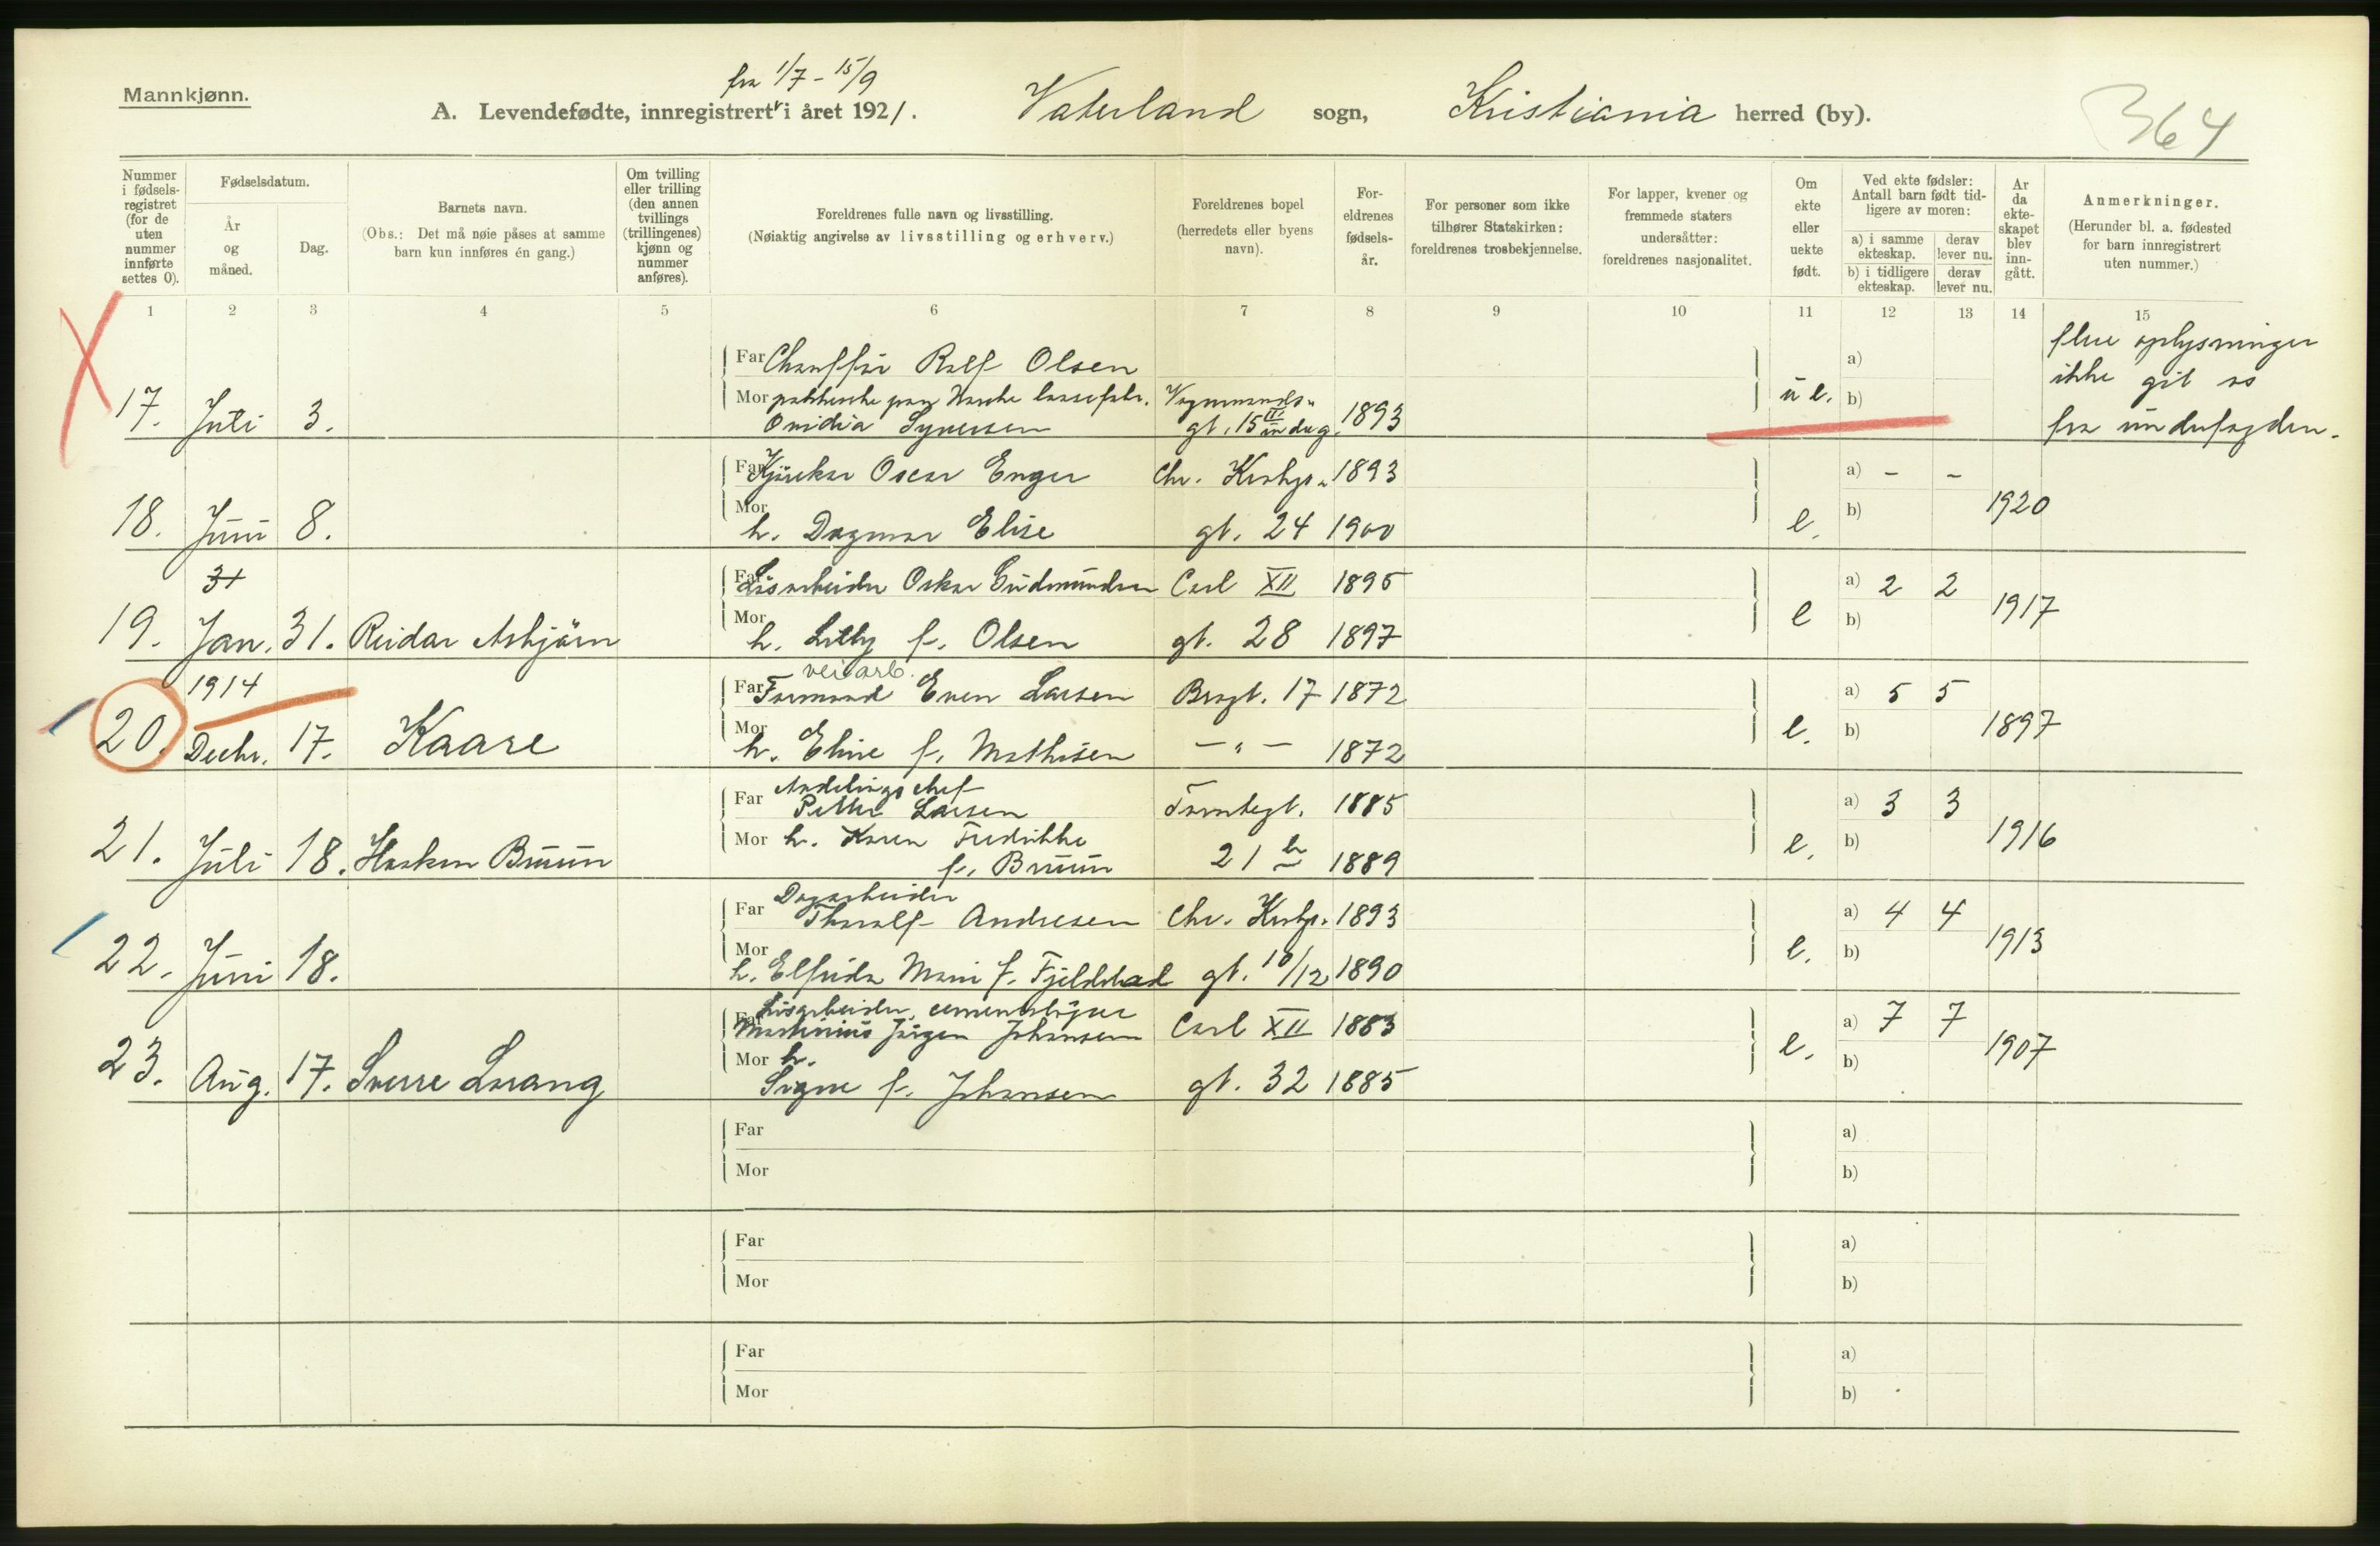 Mannkjønn.
fra 1/7 - 15/9
A. Levendefødte, innregistrert i året 1921.
Vaterland sogn, Kristiania herred (by).
364
Nummer i fødsels-registret (for de uten nummer innførte settes 0).
Fødselsdatum.
År og måned.
Dag.
Barnets navn.
(Obs.: Det må nøie påses at samme barn kun innføres én gang.)
Om tvilling eller trilling (den annen tvillings (trillingenes) kjønn og nummer anføres).
Foreldrenes fulle navn og livsstilling.
(Nøiaktig angivelse av livsstilling og erhverv.)
Foreldrenes bopel (herredets eller byens navn).
For-eldrenes fødsels-år.
For personer som ikke tilhører Statskirken: foreldrenes trosbekjennelse.
For lapper, kvener og fremmede staters undersåtter: foreldrenes nasjonalitet.
Om ekte eller uekte født.
Ved ekte fødsler: Antall barn født tid-ligere av moren:
a) i samme ekteskap.
derav lever nu.
b) i tidligere ekteskap.
derav lever nu.
År da ekte-skapet blev inn-gått.
Anmerkninger.
(Herunder bl. a. fødested for barn innregistrert uten nummer.)
1 2 3 4 5 6 7 8 9 10 11 12 13 14 15
Far Chauffør Rolf Olsen a)
Mor
17. Juli 3. Ovidia Syversen gt. 15 1893 u e. b)
flere oplysninger
ikke git os
fra
Far Kjørekar Oscar Enger Chr. Krohgs 1893 a) - -
Mor
18. Juni 8. h. Dagmar Elise gt. 24 1900 e. b) 1920
31
Far Løsarbeider Oskar Gudmundsen Carl XII 1895 a) 2 2
Mor
19. Jan. 31. Reidar Asbjørn h. Lilly f. Olsen gt. 28 1897 e b) 1917
veiarb.
1914
Far Formand Even Larsen Brogt. 17 1872 a) 5 5
Mor
20. Decbr. 17. Kaare h. Eline f. Mathisen - " - 1872 e. b) 1897
Far Avdelingschef
Petter Larsen Tomtegt. 1885 a) 3 3
Mor h. Karen Fredrikke
21. Juli 18. Haakon Bruun f. Bruun 21 b 1889 e. b) 1916
Far Dagarbeider
Tharalf Andresen Chr. Krohgs 1893 a) 4 4
Mor
22. Juni 18. h. Elfrida Marie f. Fjeldstad gt. 10/12 1890 e. b) 1913
Far Løsarbeider, cementstøper
Martinius Jørgen Johansen Carl XII 1883 a) 7 7
Mor h.
23. Aug. 17. Sverre Lorang Signe f. Johansen gt. 32 1885 e. b) 1907
Far a)
Mor b)
Far a)
Mor b)
Far a)
Mor b)